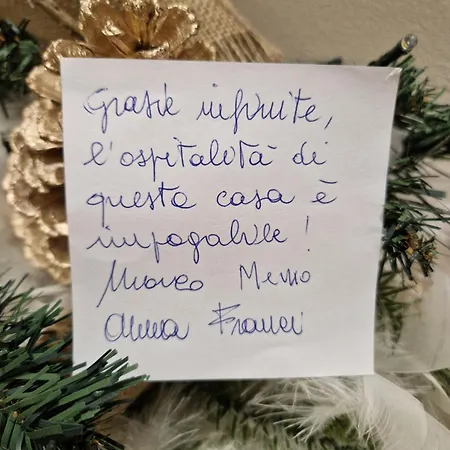 Grazie infinite,
l'ospitalità di
questa casa è
impagabile!
Marco
Anna